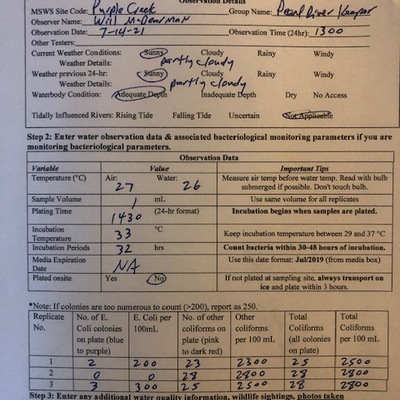 Observation Details
MSWS Site Code: Purple Creek Group Name: Pearl River Keeper
Observer Name: Will McDearman
Observation Date: 7-14-21 Observation Time (24hr): 1300
Other Testers:
Current Weather Conditions: Sunny Cloudy Rainy Windy
Weather Details: partly cloudy
Weather previous 24-hr: Sunny Cloudy Rainy Windy
Weather Details: partly cloudy
Waterbody Condition: Adequate Depth Inadequate Depth Dry No Access
Tidally Influenced Rivers: Rising Tide Falling Tide Uncertain Not Applicable
Step 2: Enter water observation data & associated bacteriological monitoring parameters if you are
monitoring bacteriological parameters.
Observation Data
Variable Value Important Tips
Temperature (°C) Air: 27 Water: 26 Measure air temp before water temp. Read with bulb
submerged if possible. Don't touch bulb.
Sample Volume 1 mL Use same volume for all replicates
Plating Time 1430 (24-hr format) Incubation begins when samples are plated.
Incubation
Temperature 33 °C Keep incubation temperature between 29 and 37 °C
Incubation Periods 32 hrs Count bacteria within 30-48 hours of incubation.
Media Expiration
Date NA Use this date format: Jul/2019 (from media box)
Plated onsite Yes No If not plated at sampling site, always transport on
ice and plate within 3 hours.
*Note: If colonies are too numerous to count (>200), report as 250.
Replicate No. of E. E. Coli per No. of other Other Total Total
No. Coli colonies 100mL coliforms on coliforms Coliforms Coliforms
on plate (blue plate (pink per 100 mL (all colonies per 100 mL
to purple) to dark red) on plate)
1 2 200 23 2300 25 2500
2 0 0 28 2800 28 2800
3 3 300 25 2500 28 2800
Step 3: Enter any additional water quality information, wildlife sightings, photos taken